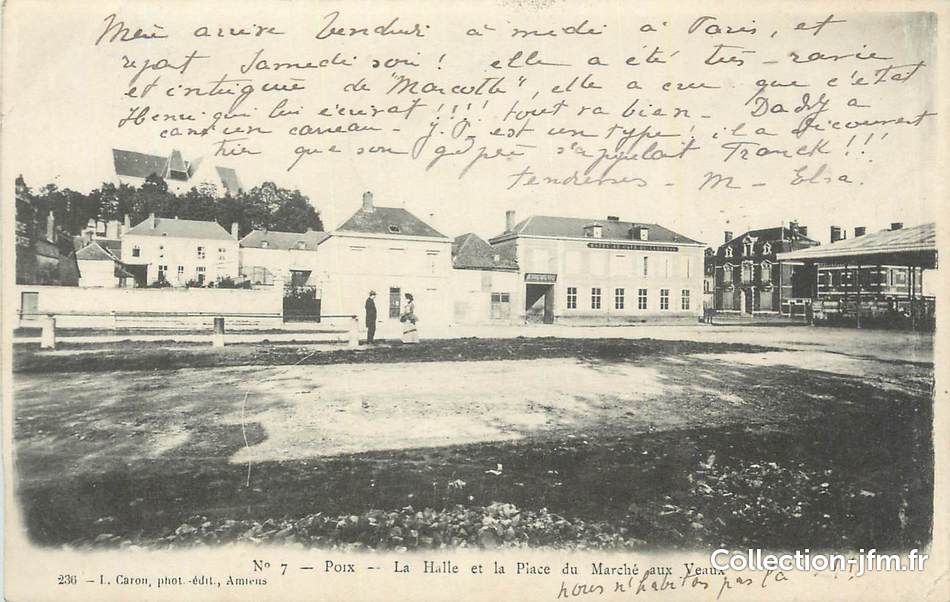 Meu arrive Vendredi à midi à Paris, et
repart Samedi soir! elle a été très-ravie
et intriguée de "Marcotte", elle a cru que c'etait
Henri qui lui écrivait!!!! tout va bien- Daddy a
un carreau- J.P. est un type! il a découvert
hier que son pépé s'appelait Franck!!!
tendresses- M- Elsa.
Nº 7 - Poix - La Halle et la Place du Marché aux Veaux
236 - L. Caron, phot.-édit., Amiens
nous n'habitons pas là
Collection-jfm.fr